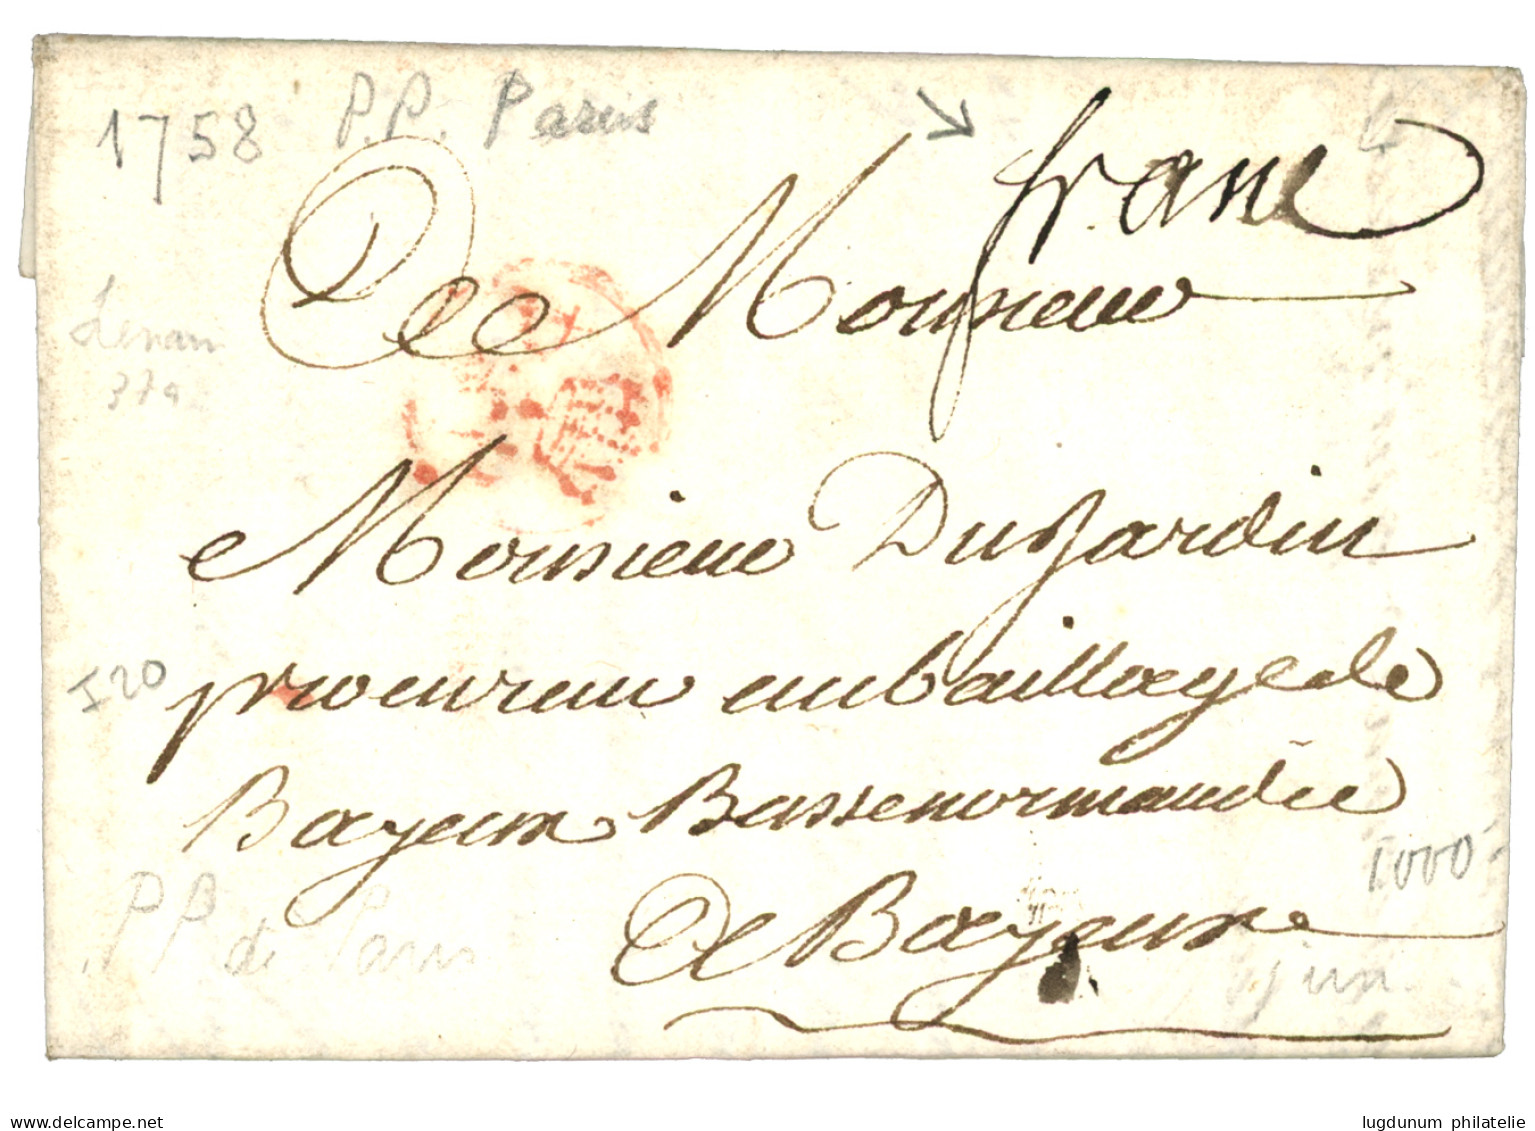 1758 P.P. Paris
franc
A Monsieur
Lenain
37a
Monsieur Dujardin
I 20
procureur au bailliage de
Bayeux Bassenormandie
1000-
PP de Paris
A Bayeux
delcampe.net
lugdunum philatelie